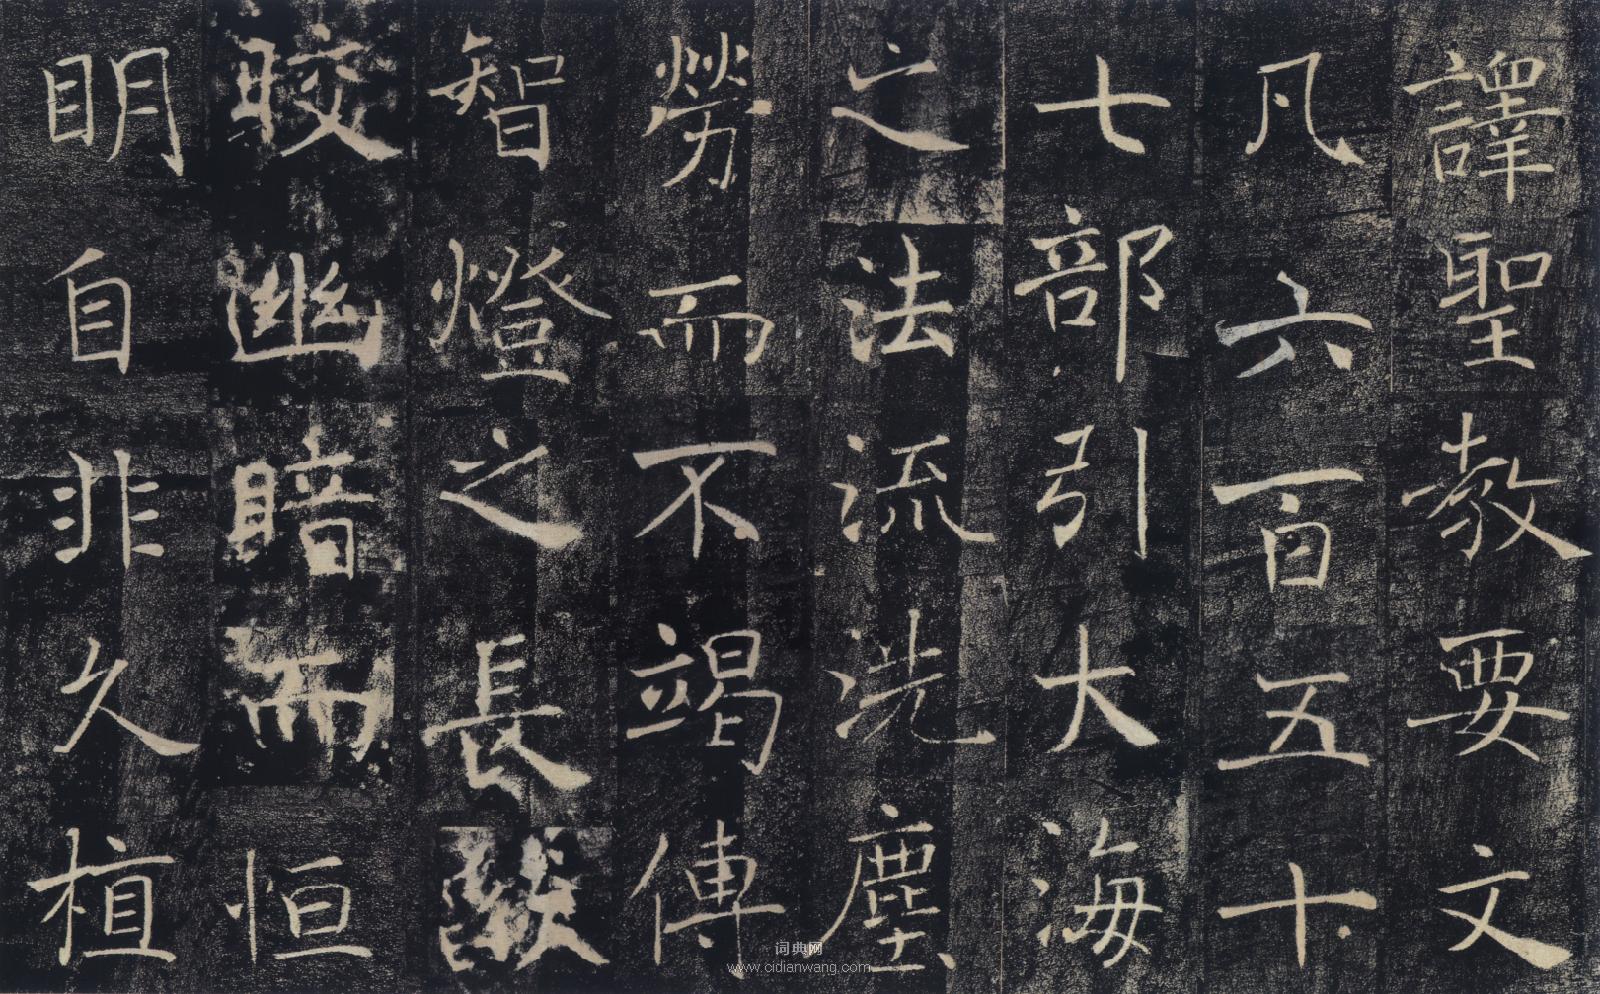 譯聖教要文
凡六百五十
七部引大海
之法流洗塵
勞而不竭傳
智燈之長燄
皎幽暗而恒
明自非久植
词典网
www.cidianwang.com